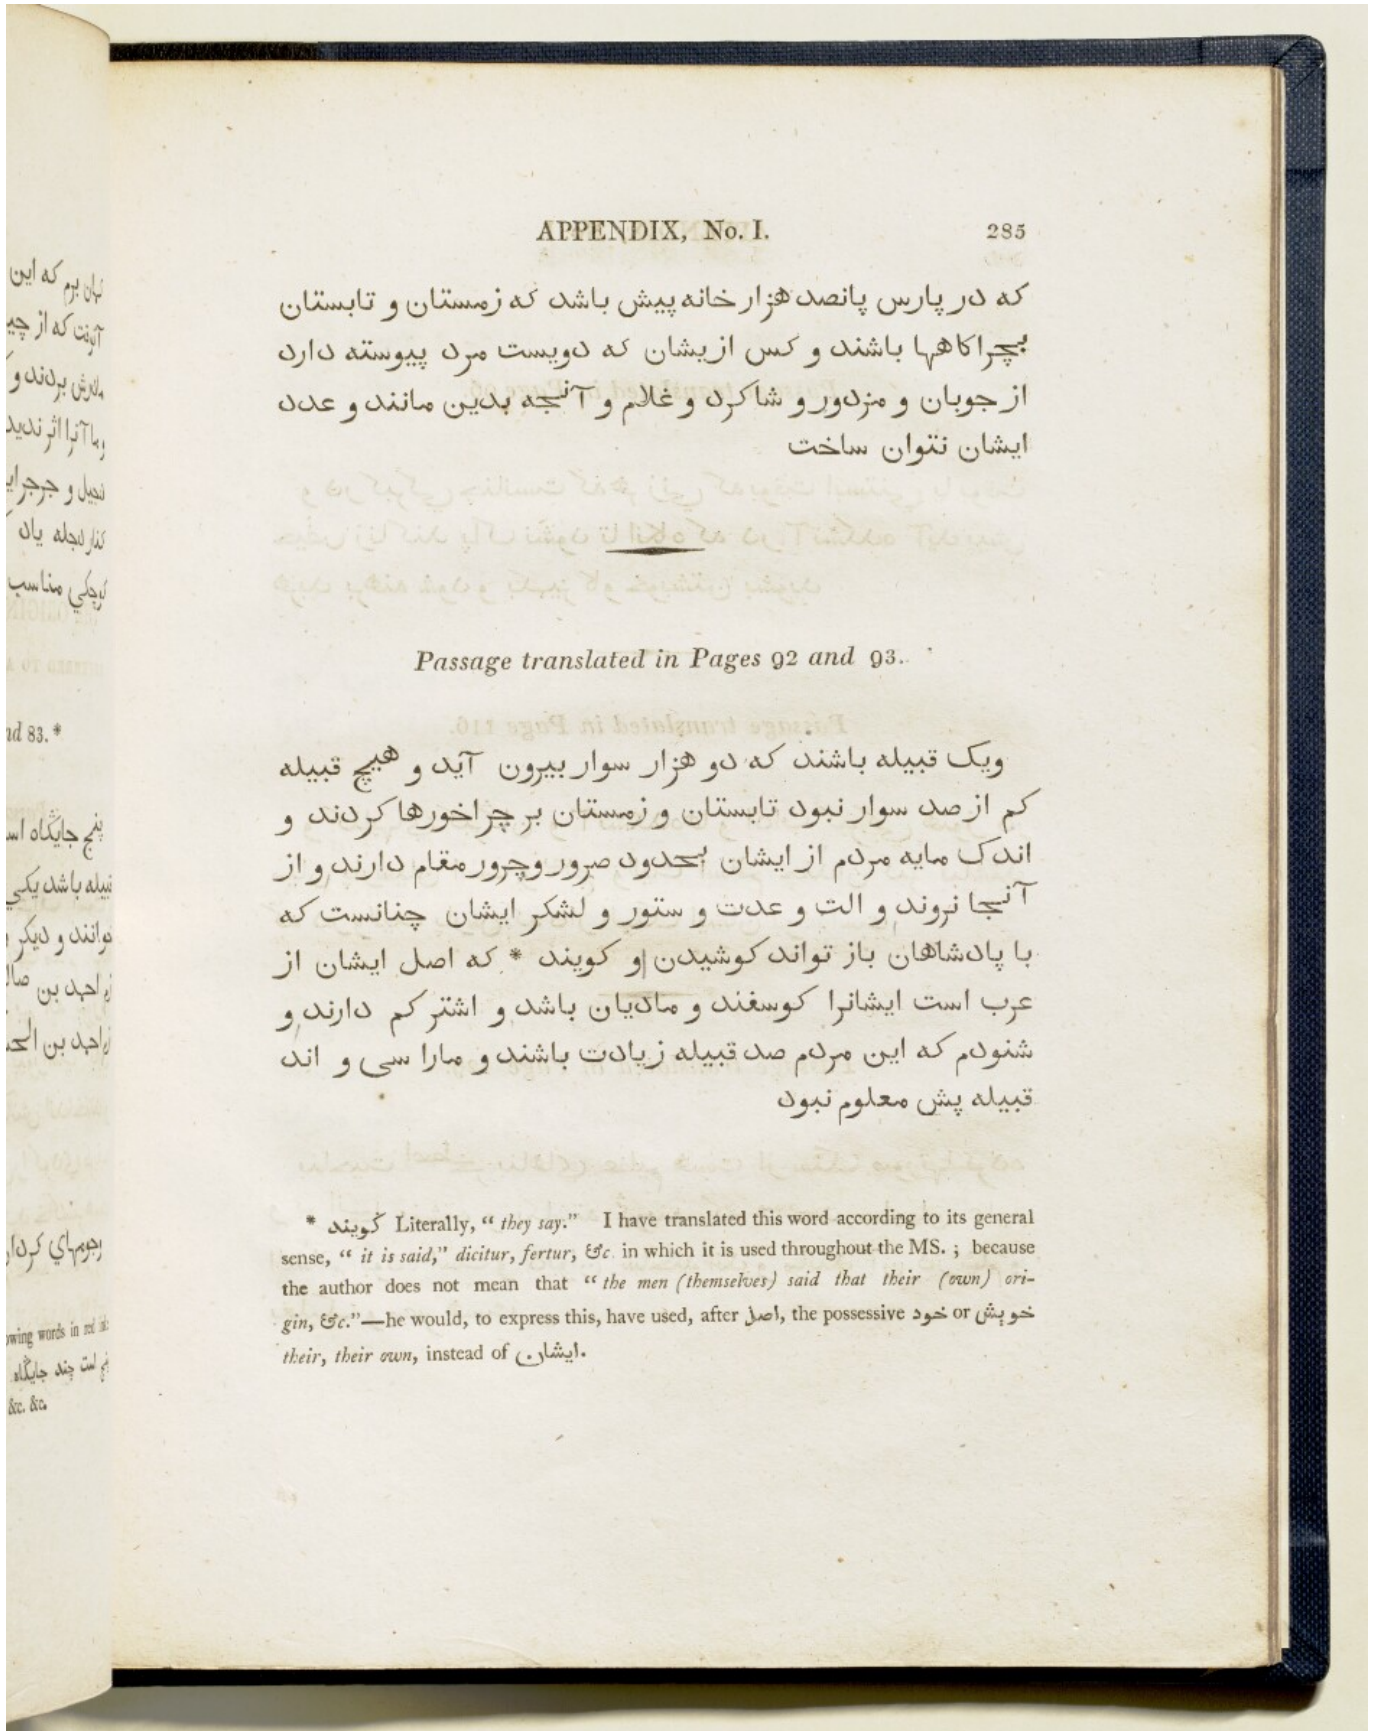 APPENDIX, No. I. 285
که در پارس پانصد هزار خانه پیش باشد که زمستان و تابستان
بچراکاهها باشند و کس ازیشان که دویست مرد پیوسته دارد
از جوبان و مزدور و شاکرد و غلام و آنجه بدین مانند و عدد
ایشان نتوان ساخت
Passage translated in Pages 92 and 93.
ویک قبیله باشند که دو هزار سوار بیرون آید و هیچ قبیله
کم از صد سوار نبود تابستان و زمستان بر چراخورها کردند و
اندک مایه مردم از ایشان بحدود صرور وجرور مقام دارند و از
آنجا نروند و الت و عدت و ستور و لشکر ایشان چنانست که
با پادشاهان باز تواند کوشیدن و کویند * که اصل ایشان از
عرب است ایشانرا کوسفند و مادیان باشد و اشتر کم دارند و
شنودم که این مردم صد قبیله زیادت باشند و مارا سی و اند
قبیله پش معلوم نبود
* کویند Literally, “ they say.” I have translated this word according to its general
sense, “ it is said,” dicitur, fertur, &c. in which it is used throughout the MS. ; because
the author does not mean that “ the men (themselves) said that their (own) ori-
gin, &c.”—he would, to express this, have used, after اصل, the possessive خود or خویش
their, their own, instead of ایشان.
nd 83.*
&c. &c.